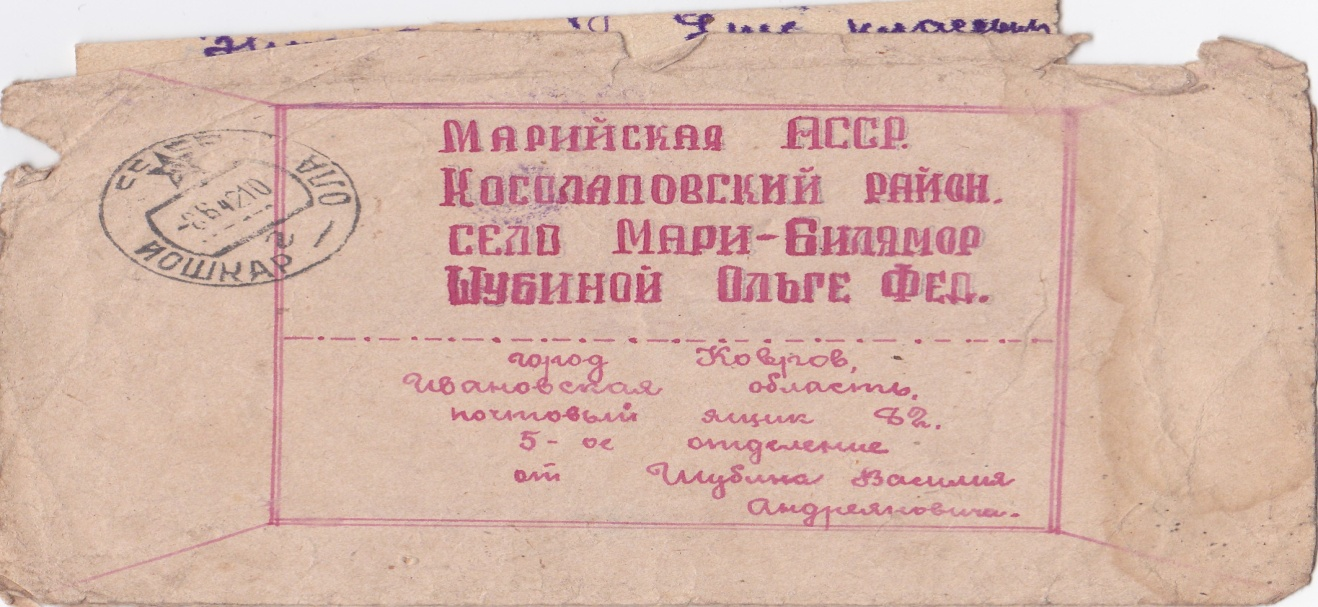 Яше классный
Марийская АССР.
Косолаповский район.
село Мари-Билямор
Шубиной Ольге Фед.
город Ковров,
Ивановская область,
почтовый ящик 82.
5-ое отделение
от Шубина Василия
Андреяновича.
ЙОШКАР ОЛА
-8.6.42.10